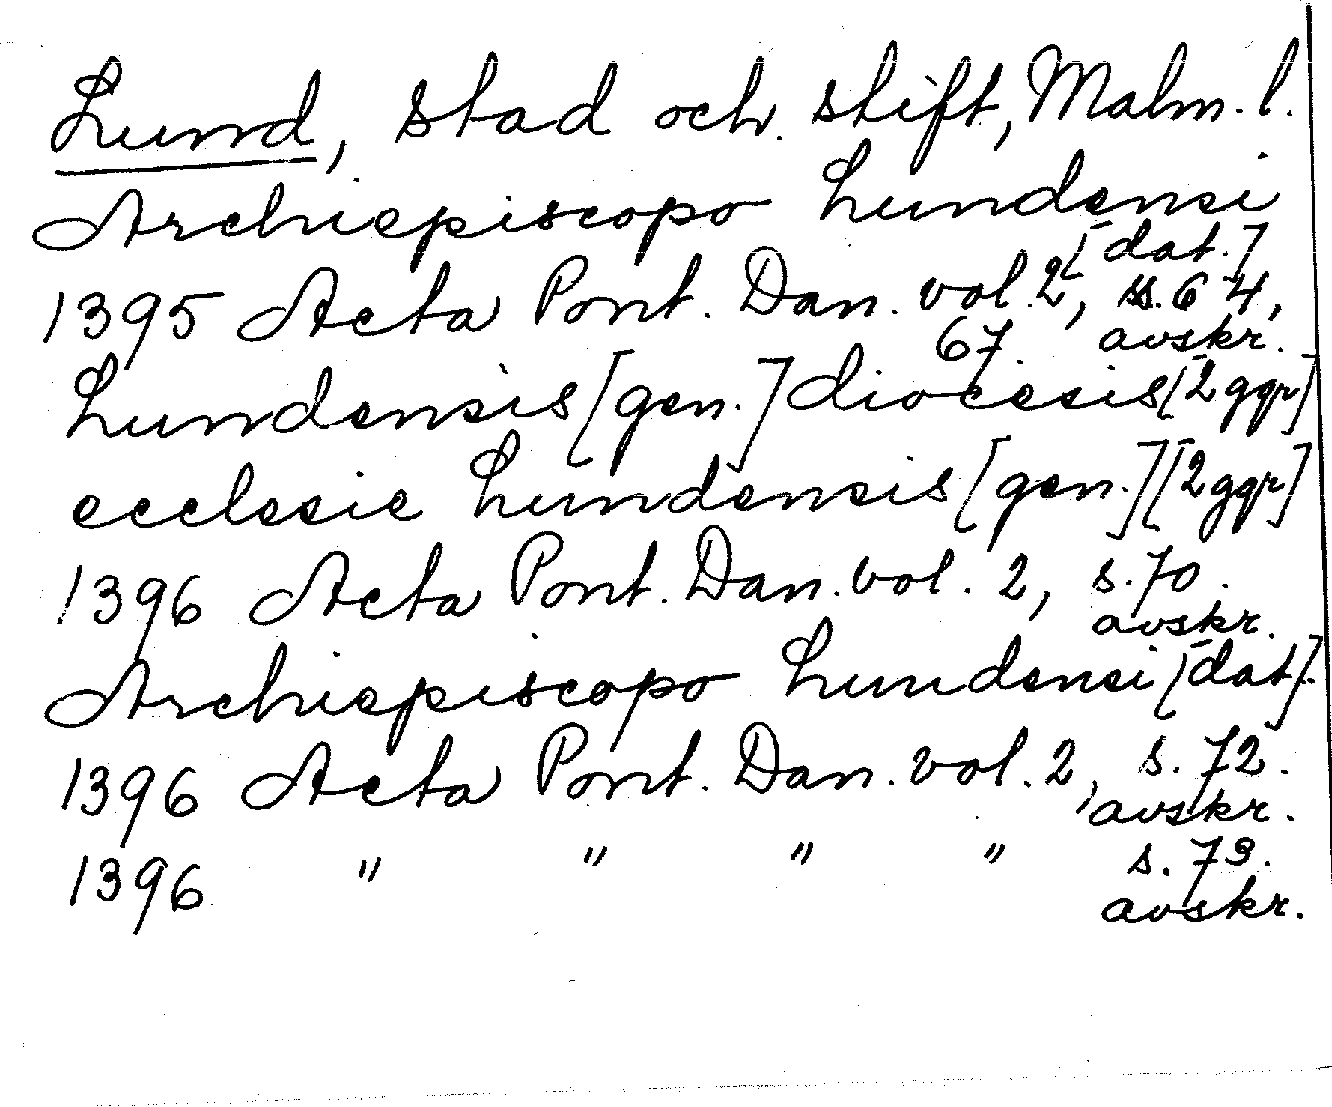 Lund, stad och stift, Malm. l.
Archiepiscopo Lundensi
[dat.]
1395 Acta Pont. Dan. vol. 2, ss. 64,
67. avskr.
Lundensis [gen.] diocesis [2 ggr]
ecclesie Lundensis [gen.] [2 ggr]
1396 Acta Pont. Dan. vol. 2, s. 70.
avskr.
Archiepiscopo Lundensi [dat].
1396 Acta Pont. Dan. vol. 2, s. 72.
avskr.
1396 " " " " s. 73.
avskr.